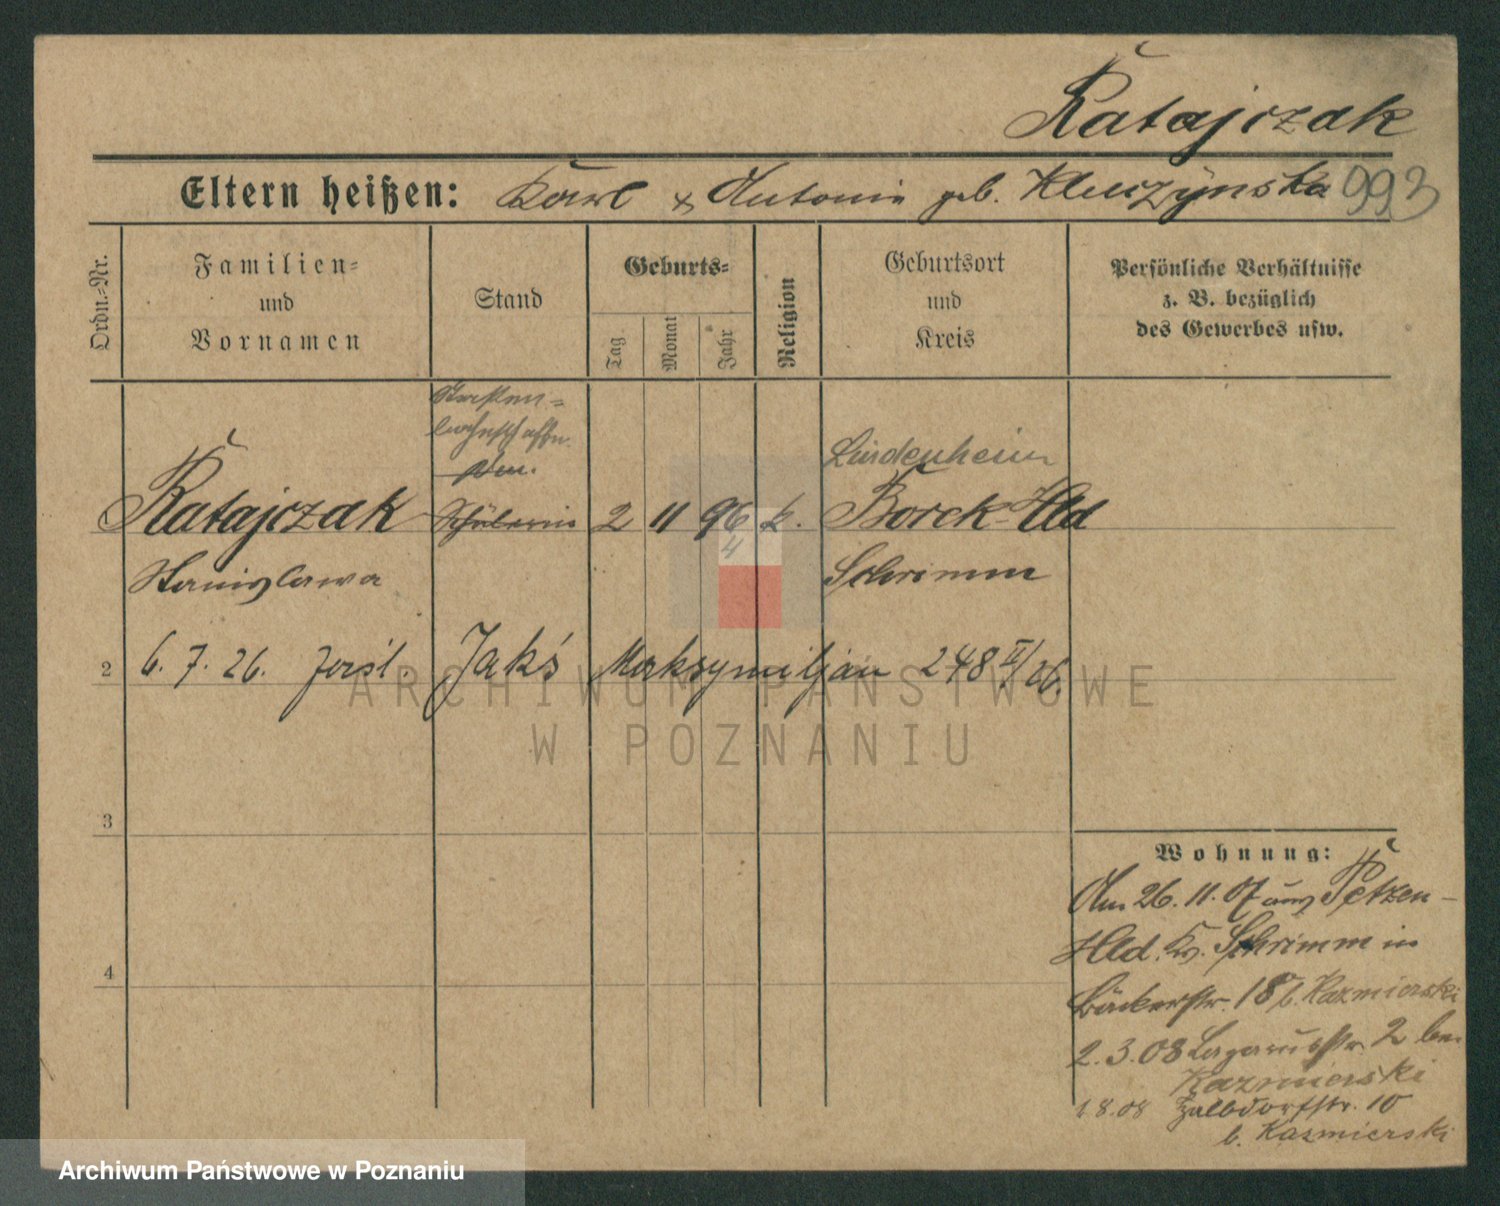 Ratajczak
Eltern heißen: Karl & Antonie geb. Kluczynska 993
Ordn.-Nr.
Familien-
und
Vornamen
Stand
Geburts-
Tag
Monat
Jahr
Religion
Geburtsort
und
Kreis
Persönliche Verhältnisse
z. B. bezüglich
des Gewerbes usw.
Lindenheim
Ratajczak Schülerin 2 11 96 k. Borck-Hld
4
Stanislawa Schrimm
2 6. 7. 26. Jakś Maksymiljan 248 II/26.
ARCHIWUM PAŃSTWOWE
W POZNANIU
3
4
Wohnung:
Am 26. 11. 07 aus Petzen-
Hld. Kr. Schrimm in
Bäckerstr. 18 b. Kazmierski
2. 3. 08 Lazarusstr. 2 bei
Kazmierski
1.8.08 10
b. Kazmierski
Archiwum Państwowe w Poznaniu